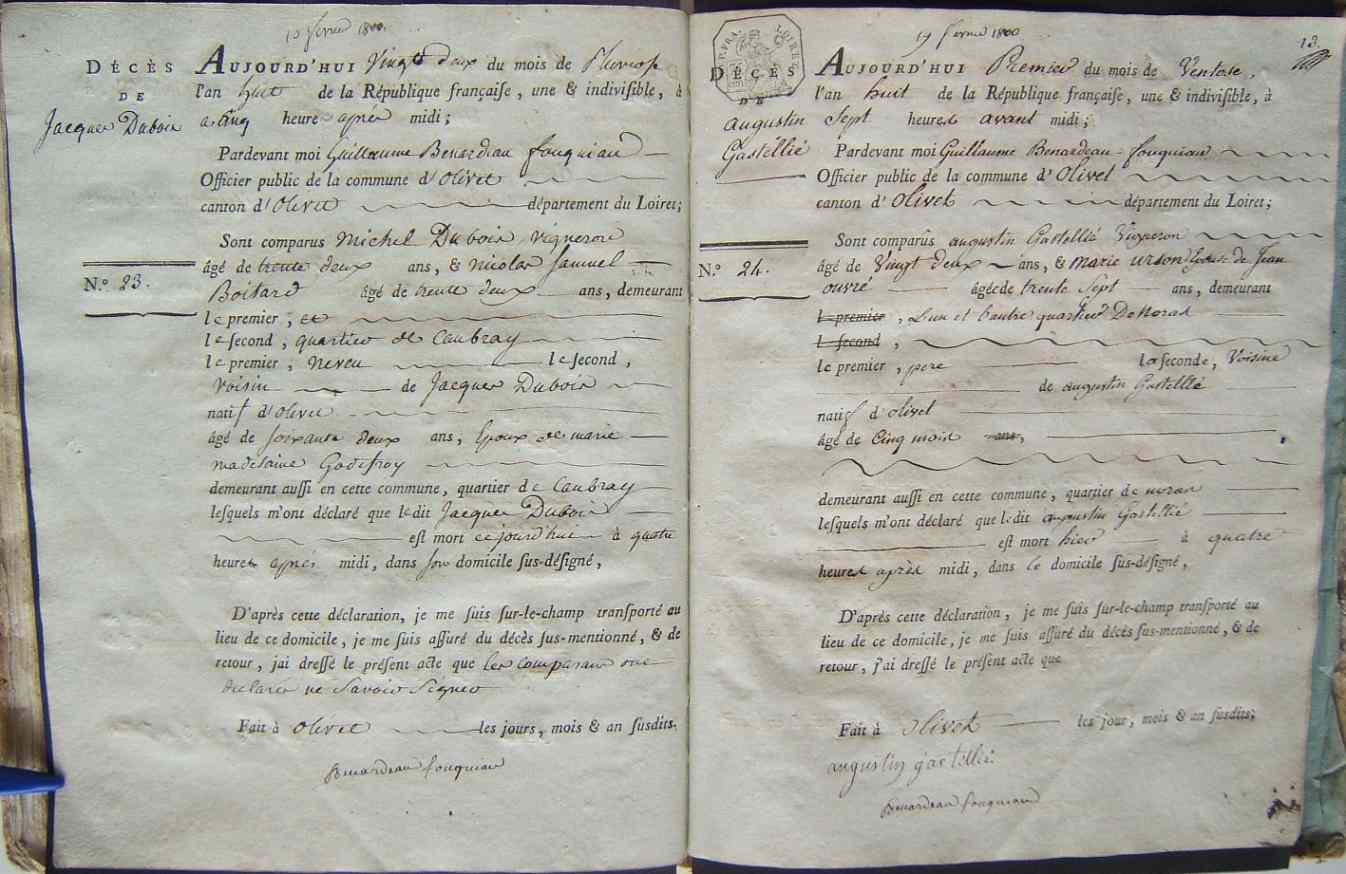 10 fevrier 1800.
DÉCÈS
DE
Jacques Dubois
N.º 23.
AUJOURD'HUI Vingt deux du mois de Pluviose
l'an huit de la République françaiſe, une & indiviſible, à
a Cinq heure après midi;
Pardevant moi Guillaume Benardeau fouquiau
Officier public de la commune d'Olivet
canton d'Olivet département du Loiret;
Sont comparus Michel Dubois Vigneron
âgé de trente deux ans, & Nicolas Samuel
Boitard âgé de trente deux ans, demeurant
le premier, et
le ſecond, quartier de Caubray
le premier, neveu le ſecond,
Voisin de Jacques Dubois
natif d'Olivet
âgé de soixante deux ans, Epoux de marie
madelaine Godefroy
demeurant auſſi en cette commune, quartier de Caubray
leſquels m'ont déclaré que ledit Jacques Dubois
eſt mort cejourd'hui à quatre
heures après midi, dans son domicile ſus-déſigné,
D'après cette déclaration, je me ſuis ſur-le-champ tranſporté au
lieu de ce domicile, je me ſuis aſſuré du décès ſus-mentionné, & de
retour, j'ai dreſſé le préſent acte que les comparans ont
declarés ne Savoir Signer
Fait à Olivet les jours, mois & an ſuſdits.
Benardeau fouquiau
19 fevrier 1800
13
RÉP. FRA.
LOIRET
DÉCÈS
DE
augustin
Gastellié
N.º 24.
AUJOURD'HUI Premier du mois de Ventose,
l'an huit de la République françaiſe, une & indiviſible, à
Sept heures avant midi;
Pardevant moi Guillaume Benardeau fouquiau
Officier public de la commune d'Olivet
canton d'Olivet département du Loiret;
Sont comparûs augustin Gastellié Vigneron
âgé de Vingt deux ans, & marie urson Epouse de Jean
ouvré âgée de trente Sept ans, demeurant
le premier, L'un et L'autre quartier De Noras
le ſecond,
le premier, pere la ſeconde, Voisine
de augustin Gastellié
natif d'olivet
âgé de Cinq mois ans,
demeurant auſſi en cette commune, quartier de noras
leſquels m'ont déclaré que ledit augustin Gastellié
eſt mort hier à quatre
heures après midi, dans ce domicile ſus-déſigné,
D'après cette déclaration, je me ſuis ſur-le-champ tranſporté au
lieu de ce domicile, je me ſuis aſſuré du décès ſus-mentionné, & de
retour, j'ai dreſſé le préſent acte que
Fait à Olivet les jour, mois & an ſuſdits;
augustin gastellié
Benardeau fouquiau